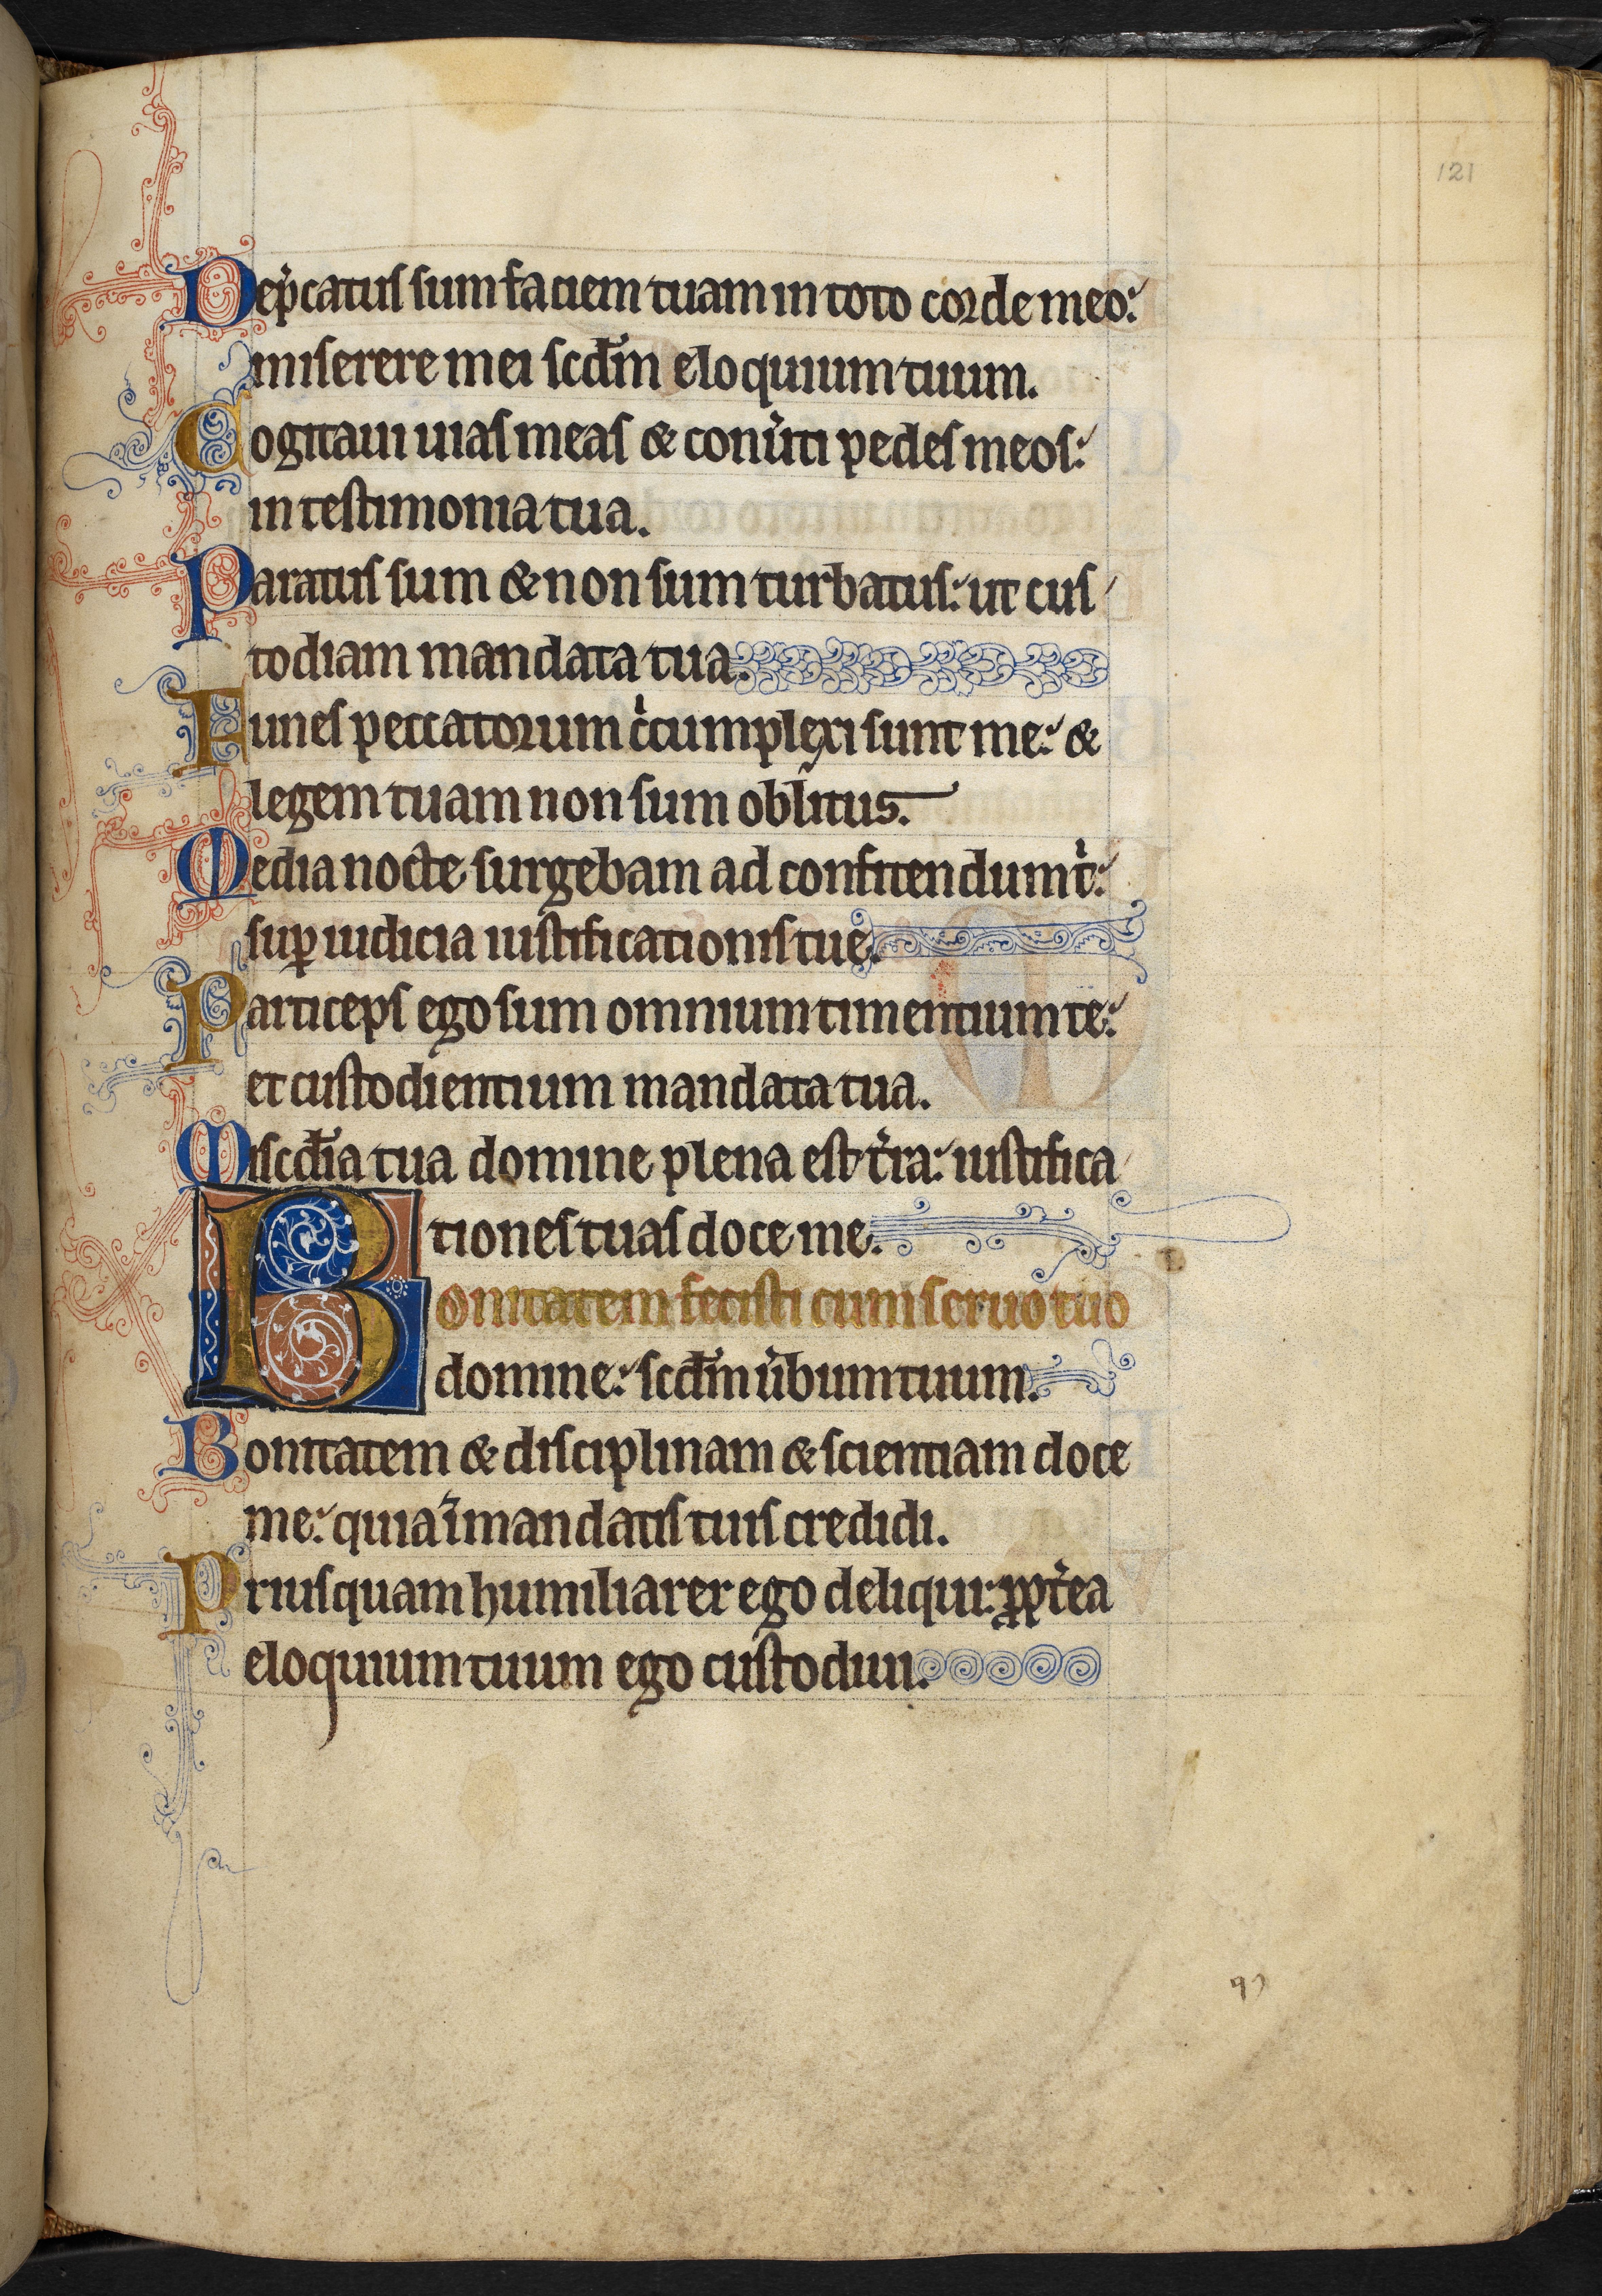 121
Dep̓catus sum faciem tuam in toto corde meo:
miserere mei scd̄m eloquium tuum.
Cogitaui uias meas & conu̓ti pedes meos:
in testimonia tua.
Paratus sum & non sum turbatus: ut cus
todiam mandata tua.
Funes peccatorum cͥcumplexi sunt me: &
legem tuam non sum oblitus.
Media nocte surgebam ad confitendum tͥ:
suꝑ iudicia iustificationis tue.
Particeps ego sum omnium timentium te:
et custodientium mandata tua.
Miscd̄ia tua domine plena est t̓ra: iustifica
tiones tuas doce me.
Bonitatem fecisti cum seruo tuo
domine: scd̄m u̓bum tuum.
Bonitatem & disciplinam & scientiam doce
me: quia ī mandatis tuis credidi.
Priusquam humiliarer ego deliqui: ꝓpt̓ea
eloquium tuum ego custodiui.